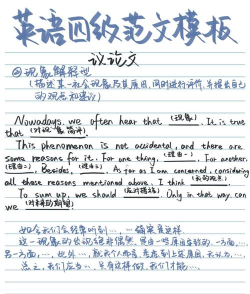 英语四级范文模板
议论文
④现象解释型
(描述某一社会现象及其原因,同时进行评价,并提出自己的观点和建议)
Nowadays, we often hear that (现象). It is true
that (对现象简评).
This phenomenon is not accidental, and there are
some reasons for it. For one thing, (理由一). For another,
(理由二). Besides, (理由三). As far as I am concerned, considering
all these reasons mentioned above, I think (我的观点)
To sum up, we should (应对措施). Only in that way can
we (对未来的期望)
如今我们会经常听到…,一个确实是这样.
这一现象的出现绝非偶然,是由一些原因导致的.一方面,…
另一方面,…,此外…,就我个人而言,考虑到上述原因,我认为….
总之,我们应当…,只有这样做,我们才能….